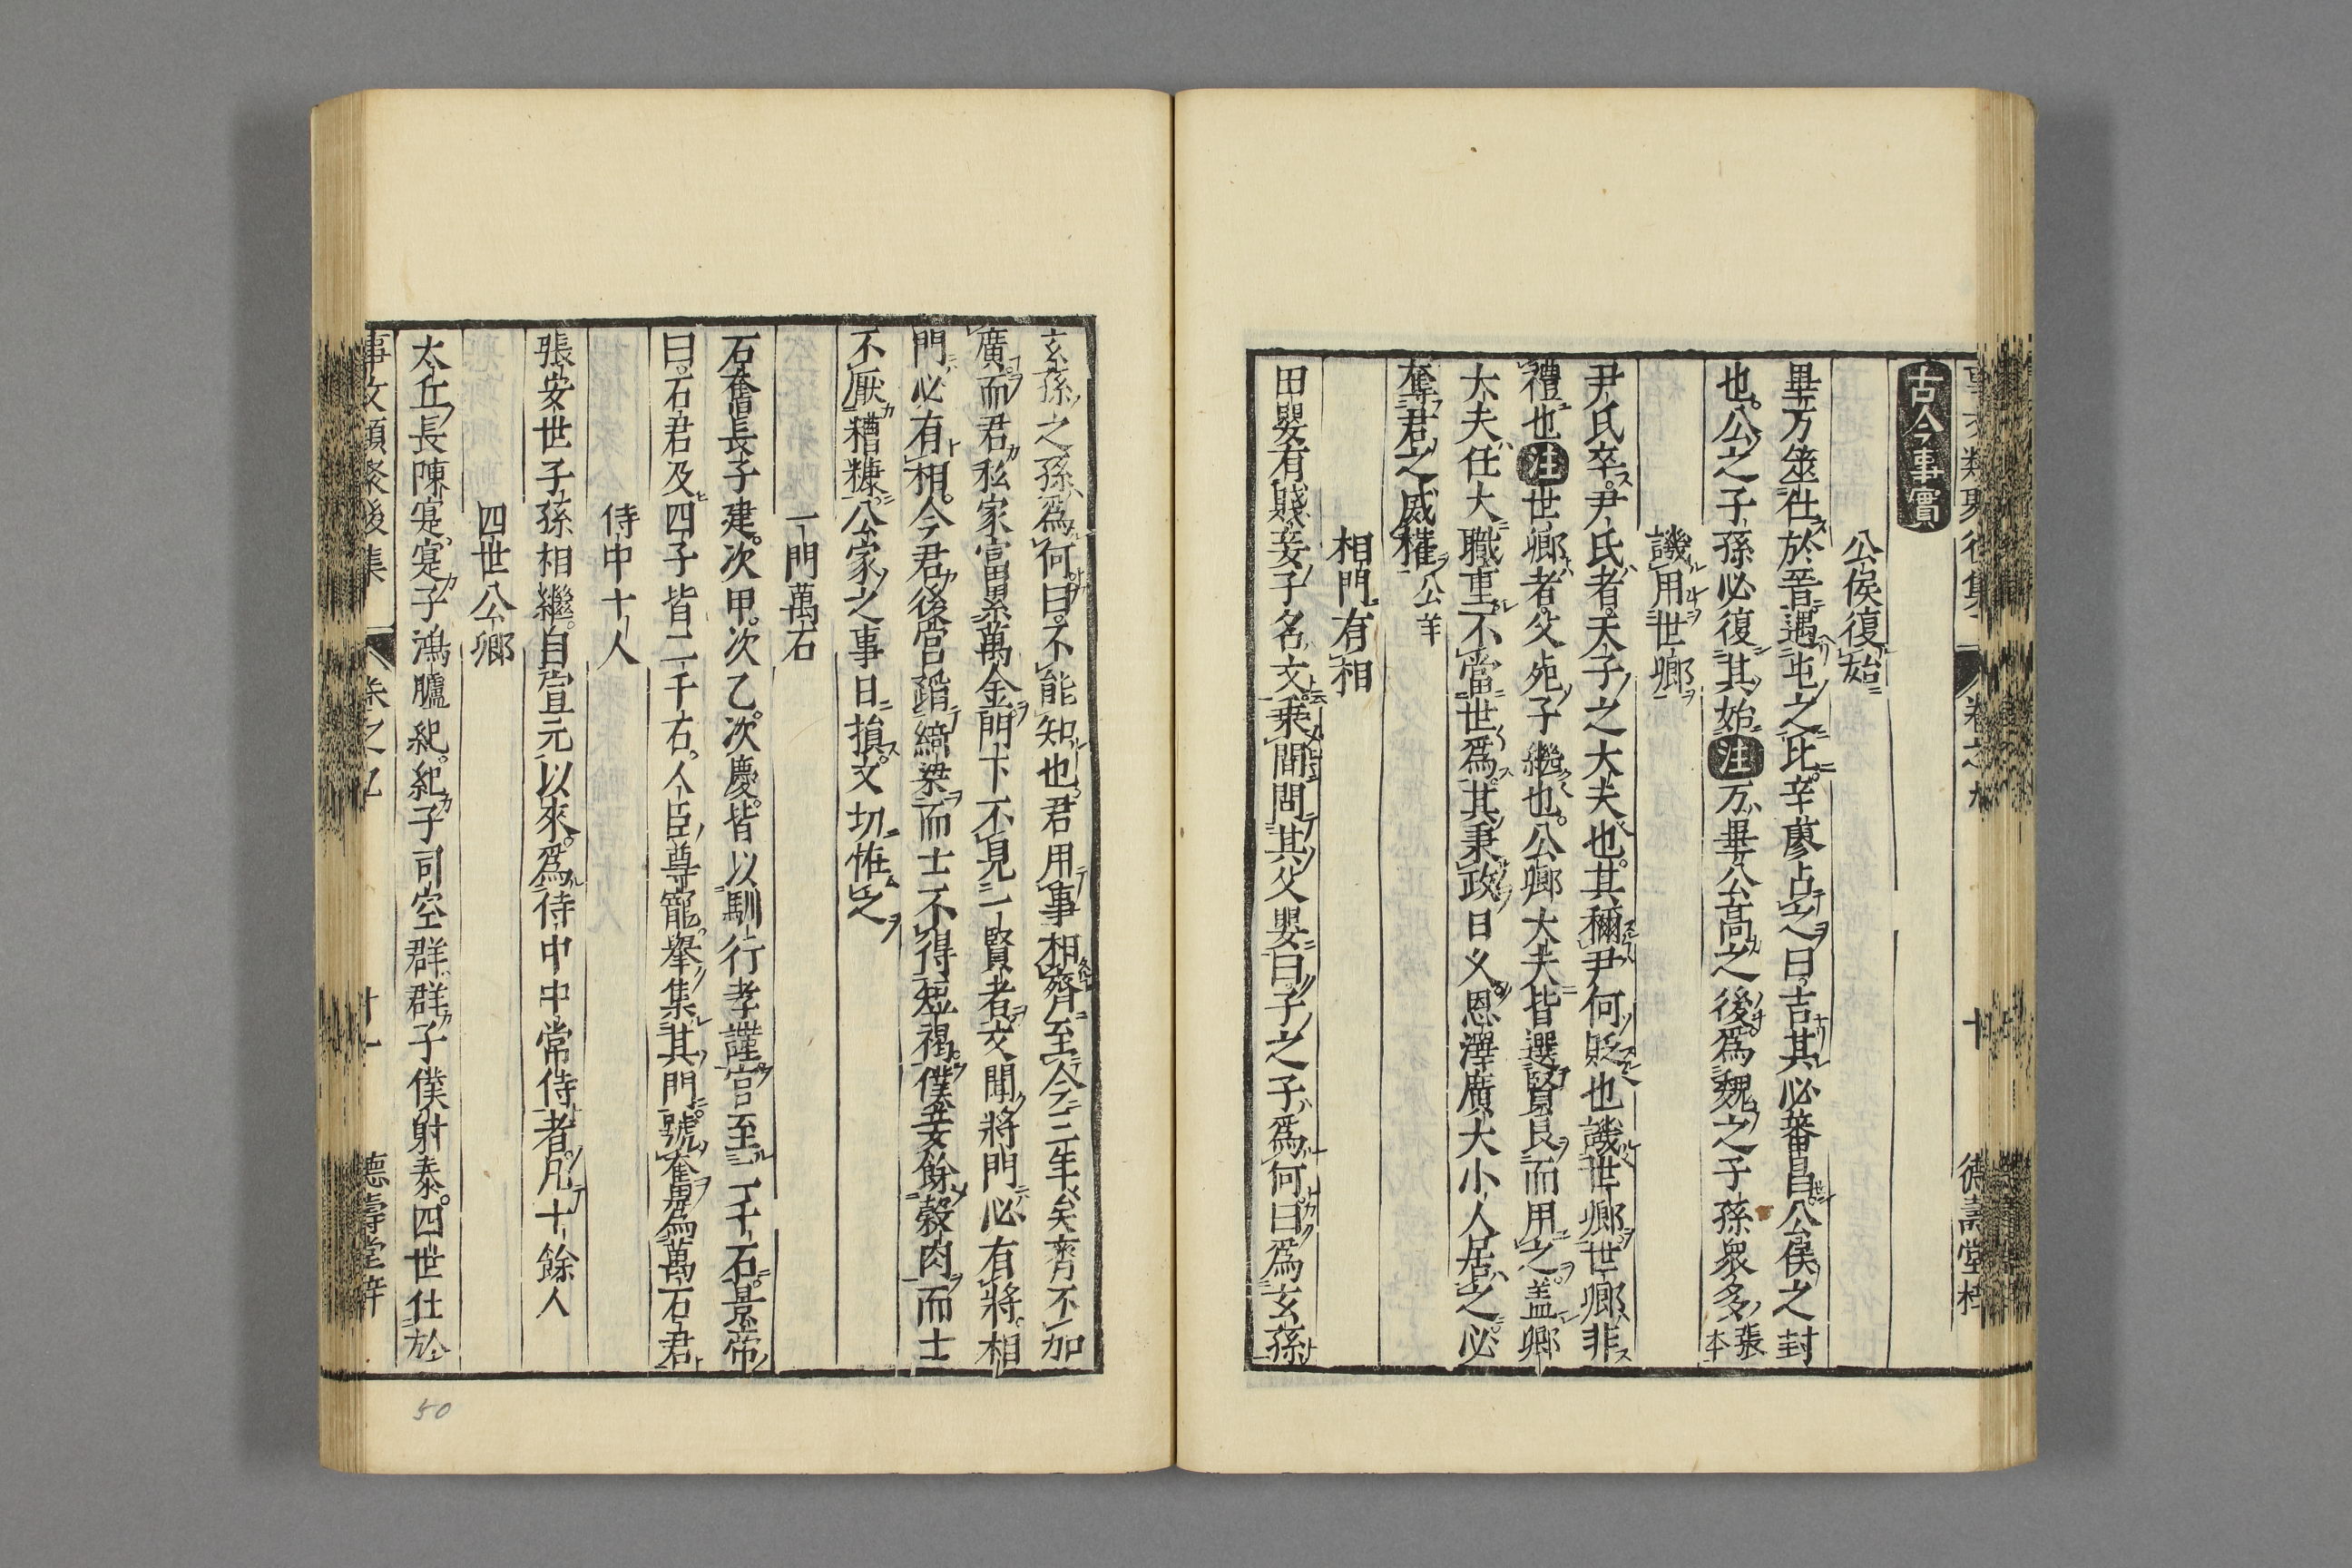 古今事實
公侯復始
畢万筮仕於晉遇屯之比辛廖占之曰吉其必蕃昌公侯之封
也公之子孫必復其始注万畢公高之後爲魏之子孫衆多張本
譏用世卿
尹氏卒尹氏者天子之大夫也其稱尹何貶也譏世卿世卿非
禮也注世卿者父死子繼也公卿大夫皆選賢良而用之盖卿
大夫任大職重不當世爲其秉政日乆恩澤廣大小人居之必
奪君之威權公羊
相門有相
田嬰有賤妾子名文乗間問其父嬰曰子之子爲何曰爲玄孫
玄孫之孫爲何曰不能知也君用事相齊至今三年矣齊不加
廣而君私家富累萬金門下不見一賢者文聞將門必有將相
門必有相今君後宮蹈綺梁而士不得短褐僕妾餘穀肉而士
不厭糟糠公家之事日損文切恠之
一門萬石
石奮長子建次甲次乙次慶皆以馴行孝謹官至二千石景帝
曰石君及四子皆二千石人臣尊寵舉集其門號奮爲萬石君
侍中十人
張安世子孫相繼自宣元以來爲侍中中常侍者凡十餘人
四世公卿
太丘長陳寔寔子鴻臚紀紀子司空群群子僕射泰四世仕於
事文類聚後集 卷之九 十一 德壽堂梓
50